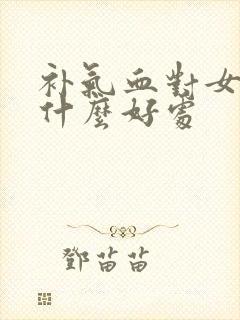 补氣血對女
什麼好處
鄧苗苗